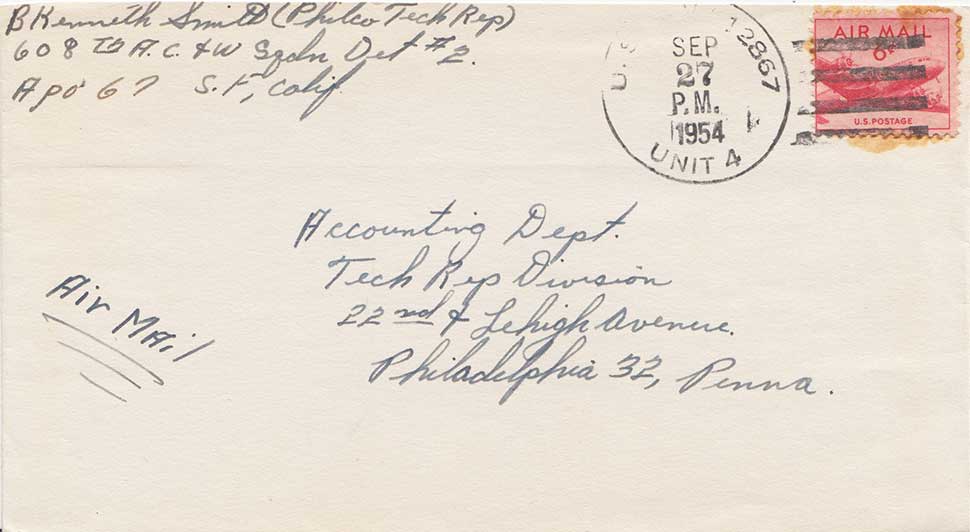 B Kenneth Smith (Philco Tech Rep)
608 th A.C. & W Sqdn Det #2.
Apo 67 S.F, Calif
SEP
27
P.M.
1954
UNIT 4
12867
AIR MAIL
6¢
U.S. POSTAGE
Accounting Dept.
Tech Rep Division
22nd & Lehigh Avenue.
Philadelphia 32, Penna.
Air Mail